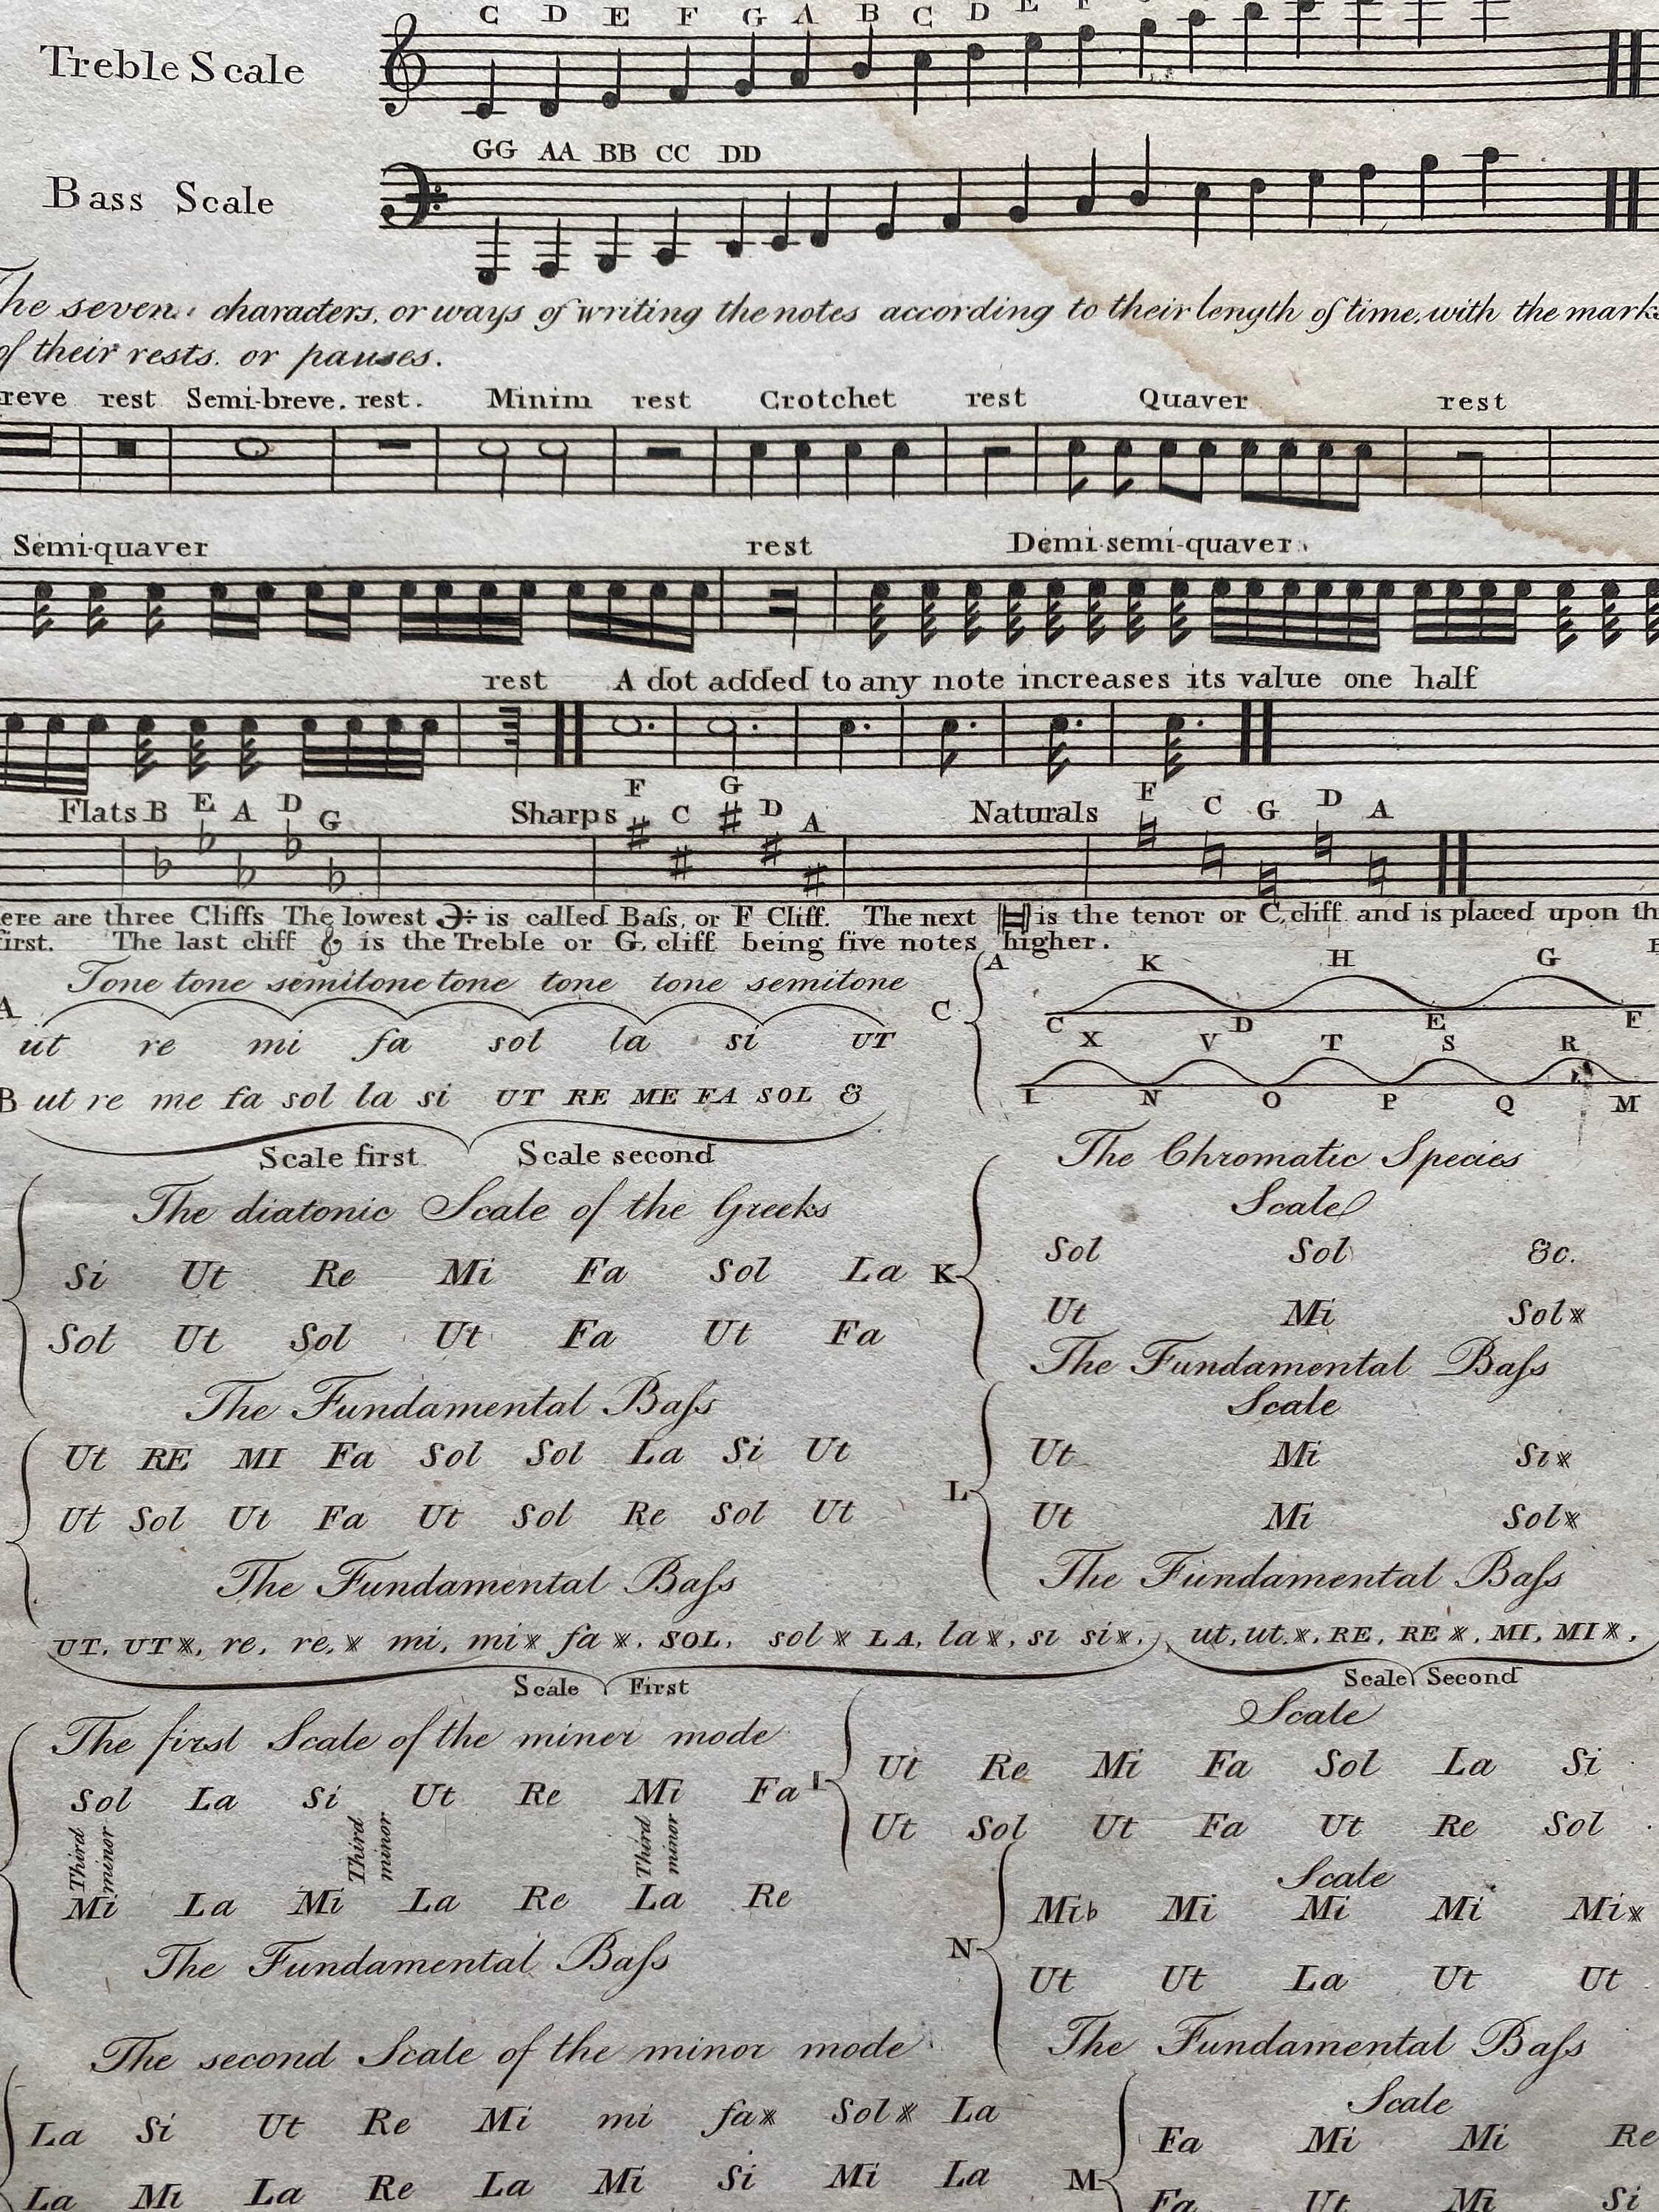 C D E F G A B C D E
Treble Scale
GG AA BB CC DD
Bass Scale
The seven characters, or ways of writing the notes according to their length of time, with the marks
of their rests. or pauses.
reve rest Semi-breve. rest. Minim rest Crotchet rest Quaver rest
Semi-quaver rest Demi-semi-quaver
rest A dot added to any note increases its value one half
Flats B E A D G Sharps F C G D A Naturals F C G D A
ere are three Cliffs The lowest is called Baſs, or F Cliff. The next is the tenor or C, cliff and is placed upon th
first. The last cliff is the Treble or G, cliff being five notes higher.
Tone tone semitone tone tone tone semitone
A ut re mi fa sol la si UT
B ut re me fa sol la si UT RE ME FA SOL &
Scale first Scale second
C A K H G
C D E F
X V T S R
I N O P Q M
The diatonic Scale of the Greeks
Si Ut Re Mi Fa Sol La
Sol Ut Sol Ut Fa Ut Fa
The Fundamental Baſs
The Chromatic Species
Scale
K Sol Sol &c.
Ut Mi Sol𝄪
The Fundamental Baſs
Ut RE MI Fa Sol Sol La Si Ut
Ut Sol Ut Fa Ut Sol Re Sol Ut
The Fundamental Baſs
Scale
L Ut Mi Si𝄪
Ut Mi Sol𝄪
The Fundamental Baſs
UT, UT𝄪, re, re,𝄪 mi, mi𝄪 fa𝄪, SOL, sol𝄪 LA, la𝄪, si si𝄪, ut, ut.𝄪, RE, RE𝄪, MI, MI𝄪,
Scale First Scale Second
The first Scale of the miner mode
Sol La Si Ut Re Mi Fa
Third minor Third minor Third minor
Mi La Mi La Re La Re
The Fundamental Baſs
Scale
I Ut Re Mi Fa Sol La Si
Ut Sol Ut Fa Ut Re Sol
Scale
N Mi♭ Mi Mi Mi Mi𝄪
Ut Ut La Ut Ut
The Fundamental Baſs
The second Scale of the minor mode
La Si Ut Re Mi mi fa𝄪 Sol𝄪 La
La Mi La Re La Mi Si Mi La
Scale
M Fa Mi Mi Re
Fa Ut Mi Si